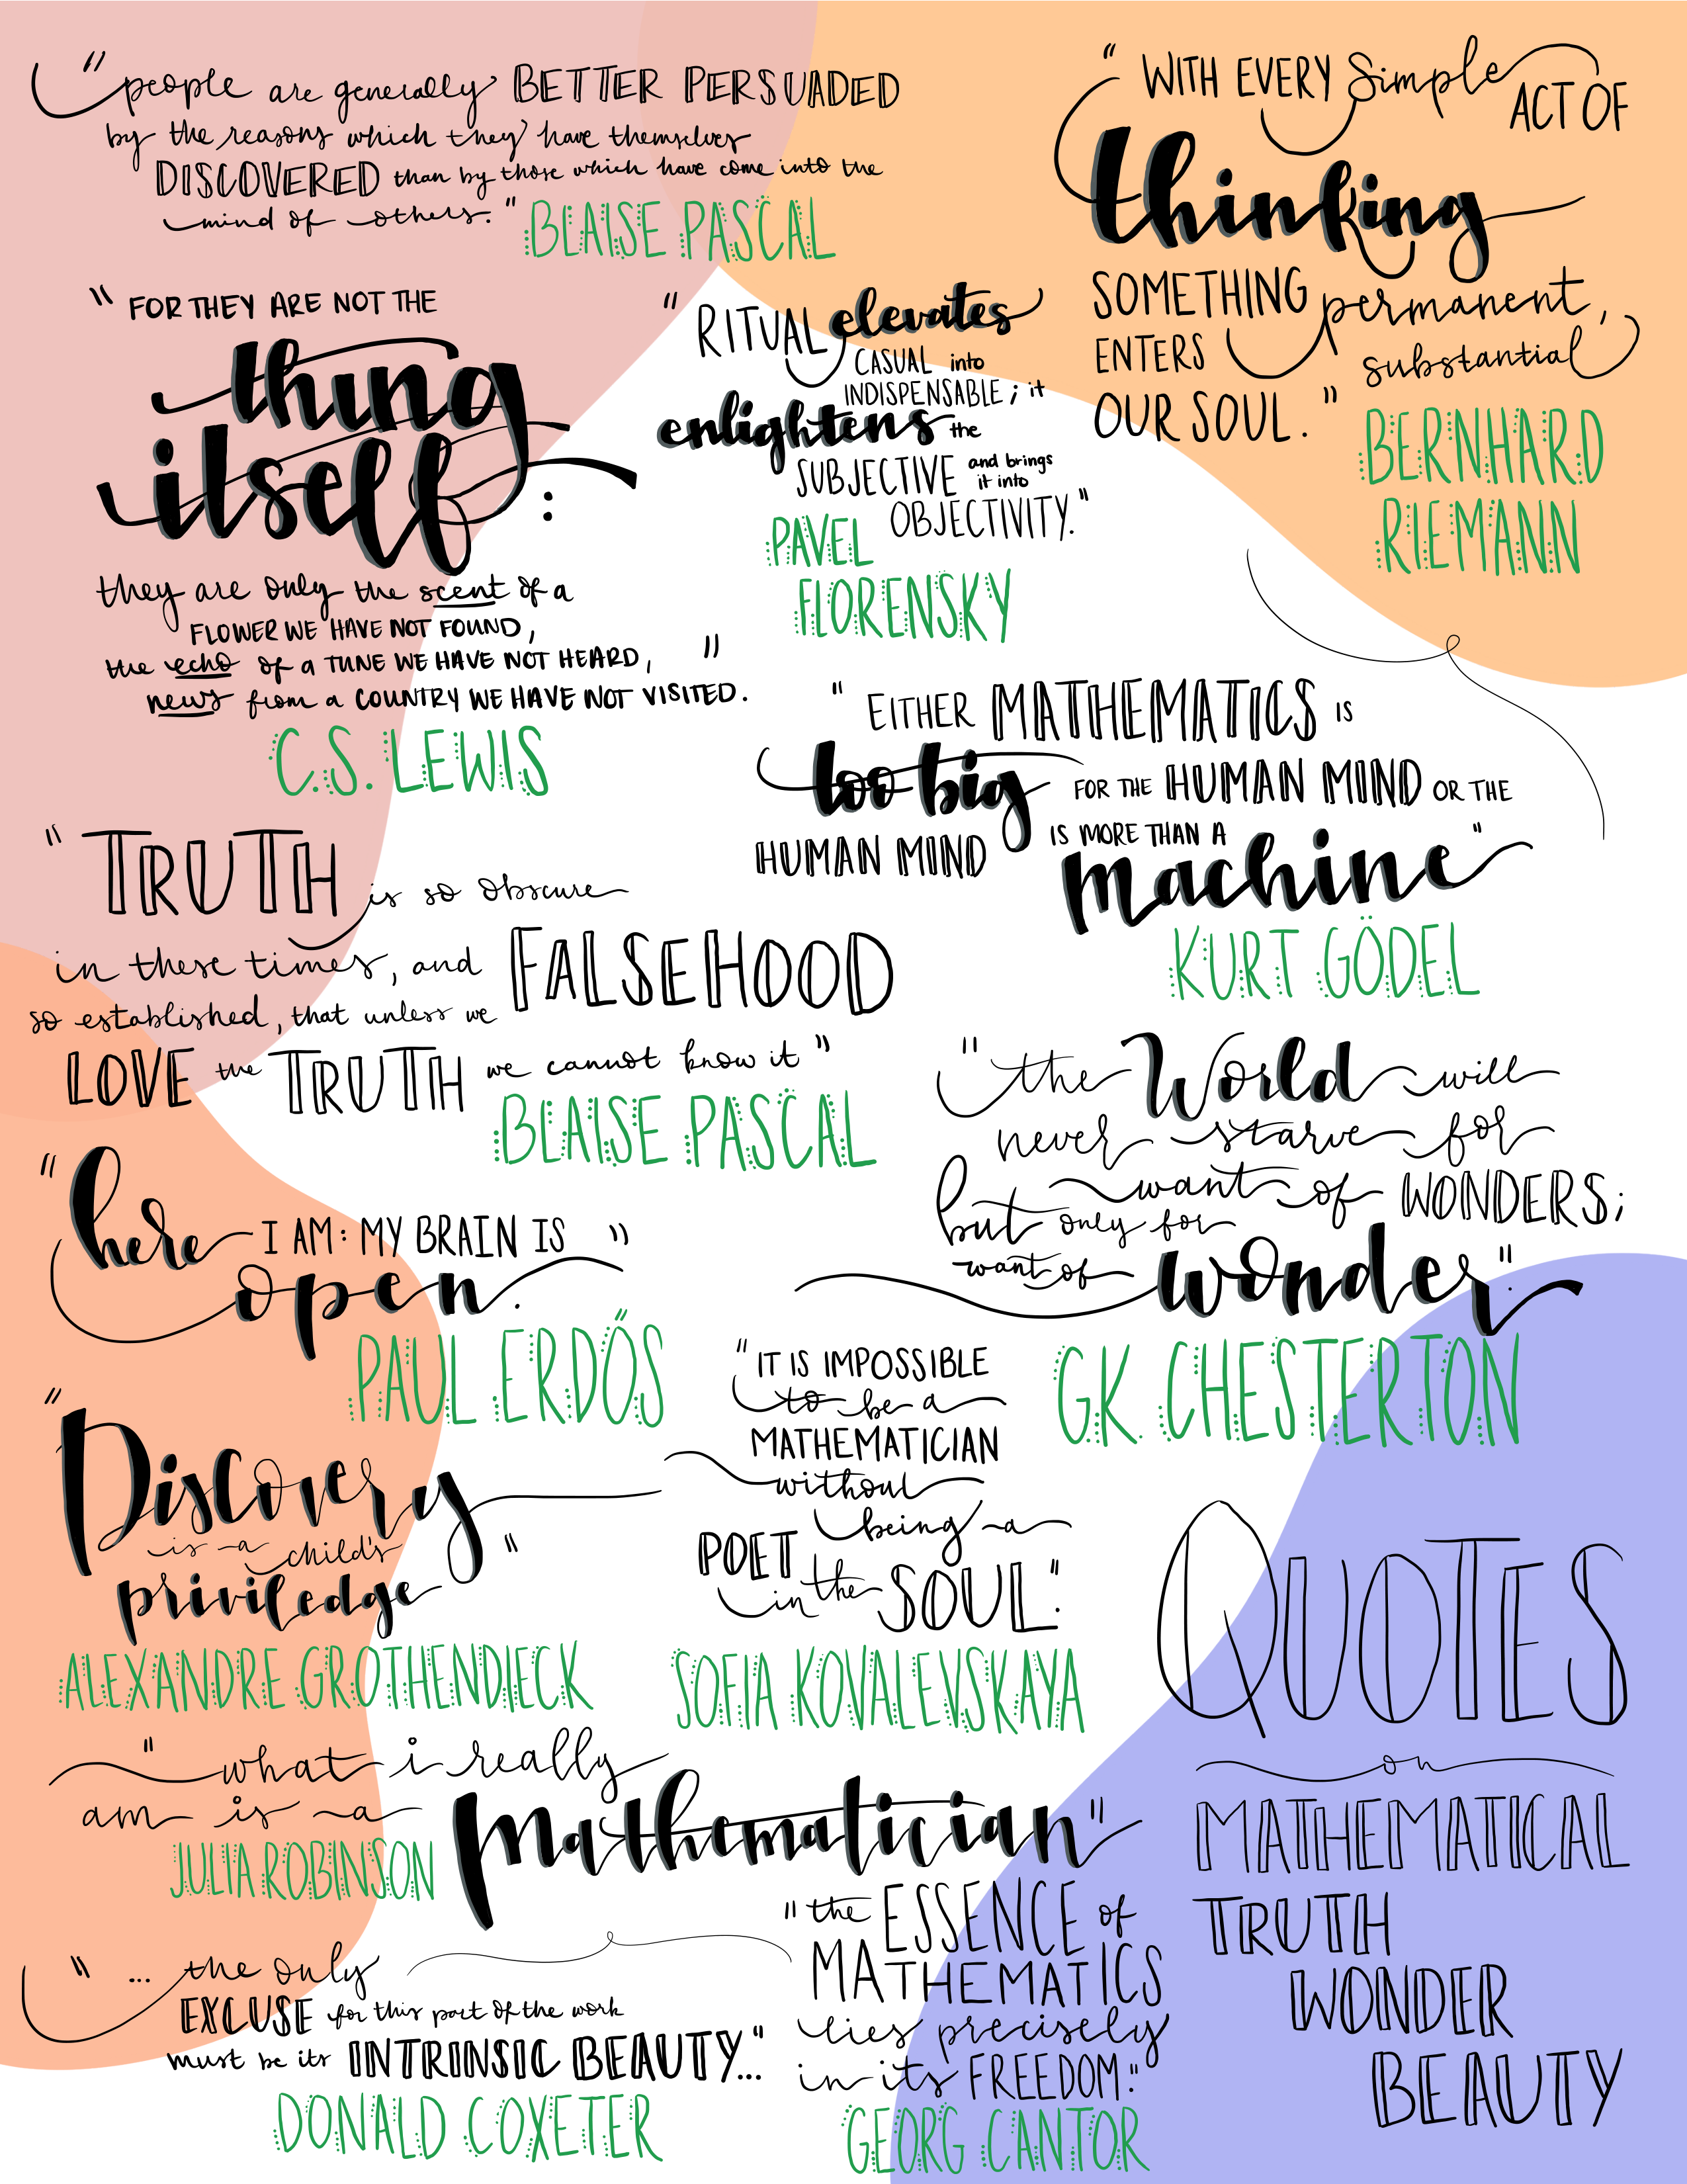 "people are generally BETTER PERSUADED
by the reasons which they have themselves
DISCOVERED than by those which have come into the
mind of others." BLAISE PASCAL
"WITH EVERY Simple
ACT OF
thinking
SOMETHING permanent,
ENTERS substantial
OUR SOUL."
BERNHARD
RIEMANN
"FOR THEY ARE NOT THE
thing
itself:
they are only the scent of a
FLOWER WE HAVE NOT FOUND,
the echo of a TUNE WE HAVE NOT HEARD,
news from a COUNTRY WE HAVE NOT VISITED."
C.S. LEWIS
"RITUAL elevates
CASUAL into
INDISPENSABLE; it
enlightens the
SUBJECTIVE and brings
it into
OBJECTIVITY."
PAVEL
FLORENSKY
"EITHER MATHEMATICS IS
too big FOR THE HUMAN MIND OR THE
HUMAN MIND IS MORE THAN A
machine"
KURT GÖDEL
"TRUTH is so obscure
in these times, and FALSEHOOD
so established, that unless we
LOVE the TRUTH we cannot know it"
BLAISE PASCAL
"the World will
never starve for
want of WONDERS;
but only for
want of wonder."
G.K. CHESTERTON
"here I AM: MY BRAIN IS
open."
PAUL ERDŐS
"Discovery
is a child's
priviledge"
ALEXANDRE GROTHENDIECK
"IT IS IMPOSSIBLE
to be a
MATHEMATICIAN
without
being a
POET
in the SOUL."
SOFIA KOVALEVSKAYA
"what i really
am is a
Mathematician"
JULIA ROBINSON
"... the only
EXCUSE for this part of the work
must be its INTRINSIC BEAUTY..."
DONALD COXETER
"the ESSENCE of
MATHEMATICS
lies precisely
in its FREEDOM."
GEORG CANTOR
QUOTES
on
MATHEMATICAL
TRUTH
WONDER
BEAUTY